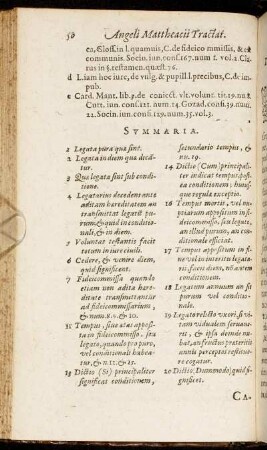 50 Angeli Mattheacii Tractat.
ea, Gloss. in l. quamuis, C. de fideicommissis, & est
communis. Socin. iun. cons. 167. num 1. vol. 2. Cla
rus in §. testamen. quæst. 76.
d L. iam hoc iure, de vulg. & pupill. l. precibus, C. de im
pub.
e Card. Mant. lib. 9. de coniect. vlt. volunt. tit. 19. nu. 1.
Curt. iun. cons. 121. num 24. Gozad. cons. 39. num.
22. Socin. iun. cons. 129. num. 35. vol. 3.
SVMMARIA.
1 Legata pura quæ sint.
2 Legata in diem qua dicã-
tur.
3 Qua legata sint sub condi-
tione.
4 Legatorũ decedens ante
aditam hæreditatem an
transmittat legatũ pu-
rum, & quid in conditio-
nali, & in diem.
5 Voluntas testantis facit
totum in iure ciuili.
6 Cedere, & venire diem,
quid significent.
7 Fideicommissa quando
etiam non adita hære-
ditate transmittantur
ad fideicommissarium,
& num. 8. 9. & 10.
11 Tempus, sine atas apposi-
ta in fideicommisso, seu
legato, quando pro puro,
vel conditionali habea-
tur, & n. 12. & 15.
13 Dictio (Si) principaliter
significat conditionem,
secundario tempus, &
nu. 19.
14 Dictio (Cum) principali-
ter indicat tempus, postea
conditionem; huius
regulæ exceptio.
16 Tempus mortis, vel im-
pedimentum appositum in
fideicommisso, seu legato,
an illud purum, an con-
ditionale efficiat.
17 Tempus appositum in fi-
ne vel in interitu legata-
rii, diem, non autem con-
ditionem inducit.
18 Legatum annuum an sit
purum vel conditio-
nale.
19 Legato relicto vxori, si vi-
tam vidualem seruaue-
rit, & ipsa deinde nu-
bat, an fructus præteritorũ
annorũ perceptos restitue-
re cogatur.
20 Dictio, Dummodo, quid si-
gnificet.
CA-